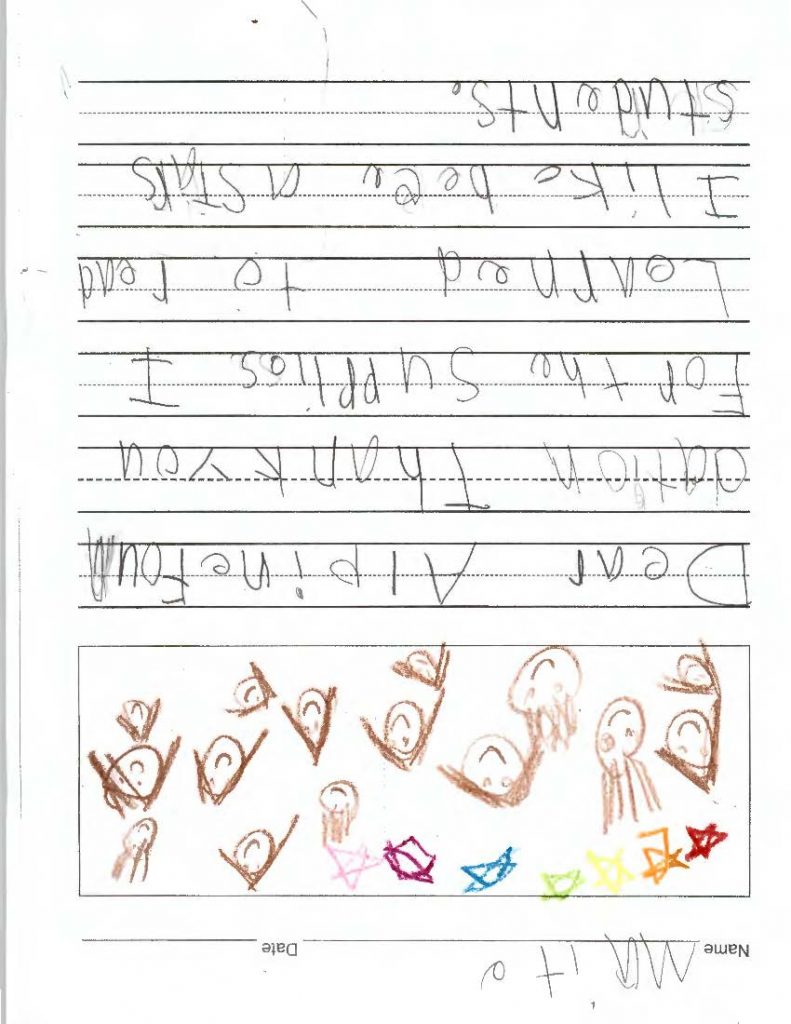 Name Maite Date
Dear AlpineFoun
dation Thank you
For the Supplies I
Learned to read
I like a STARS
students.